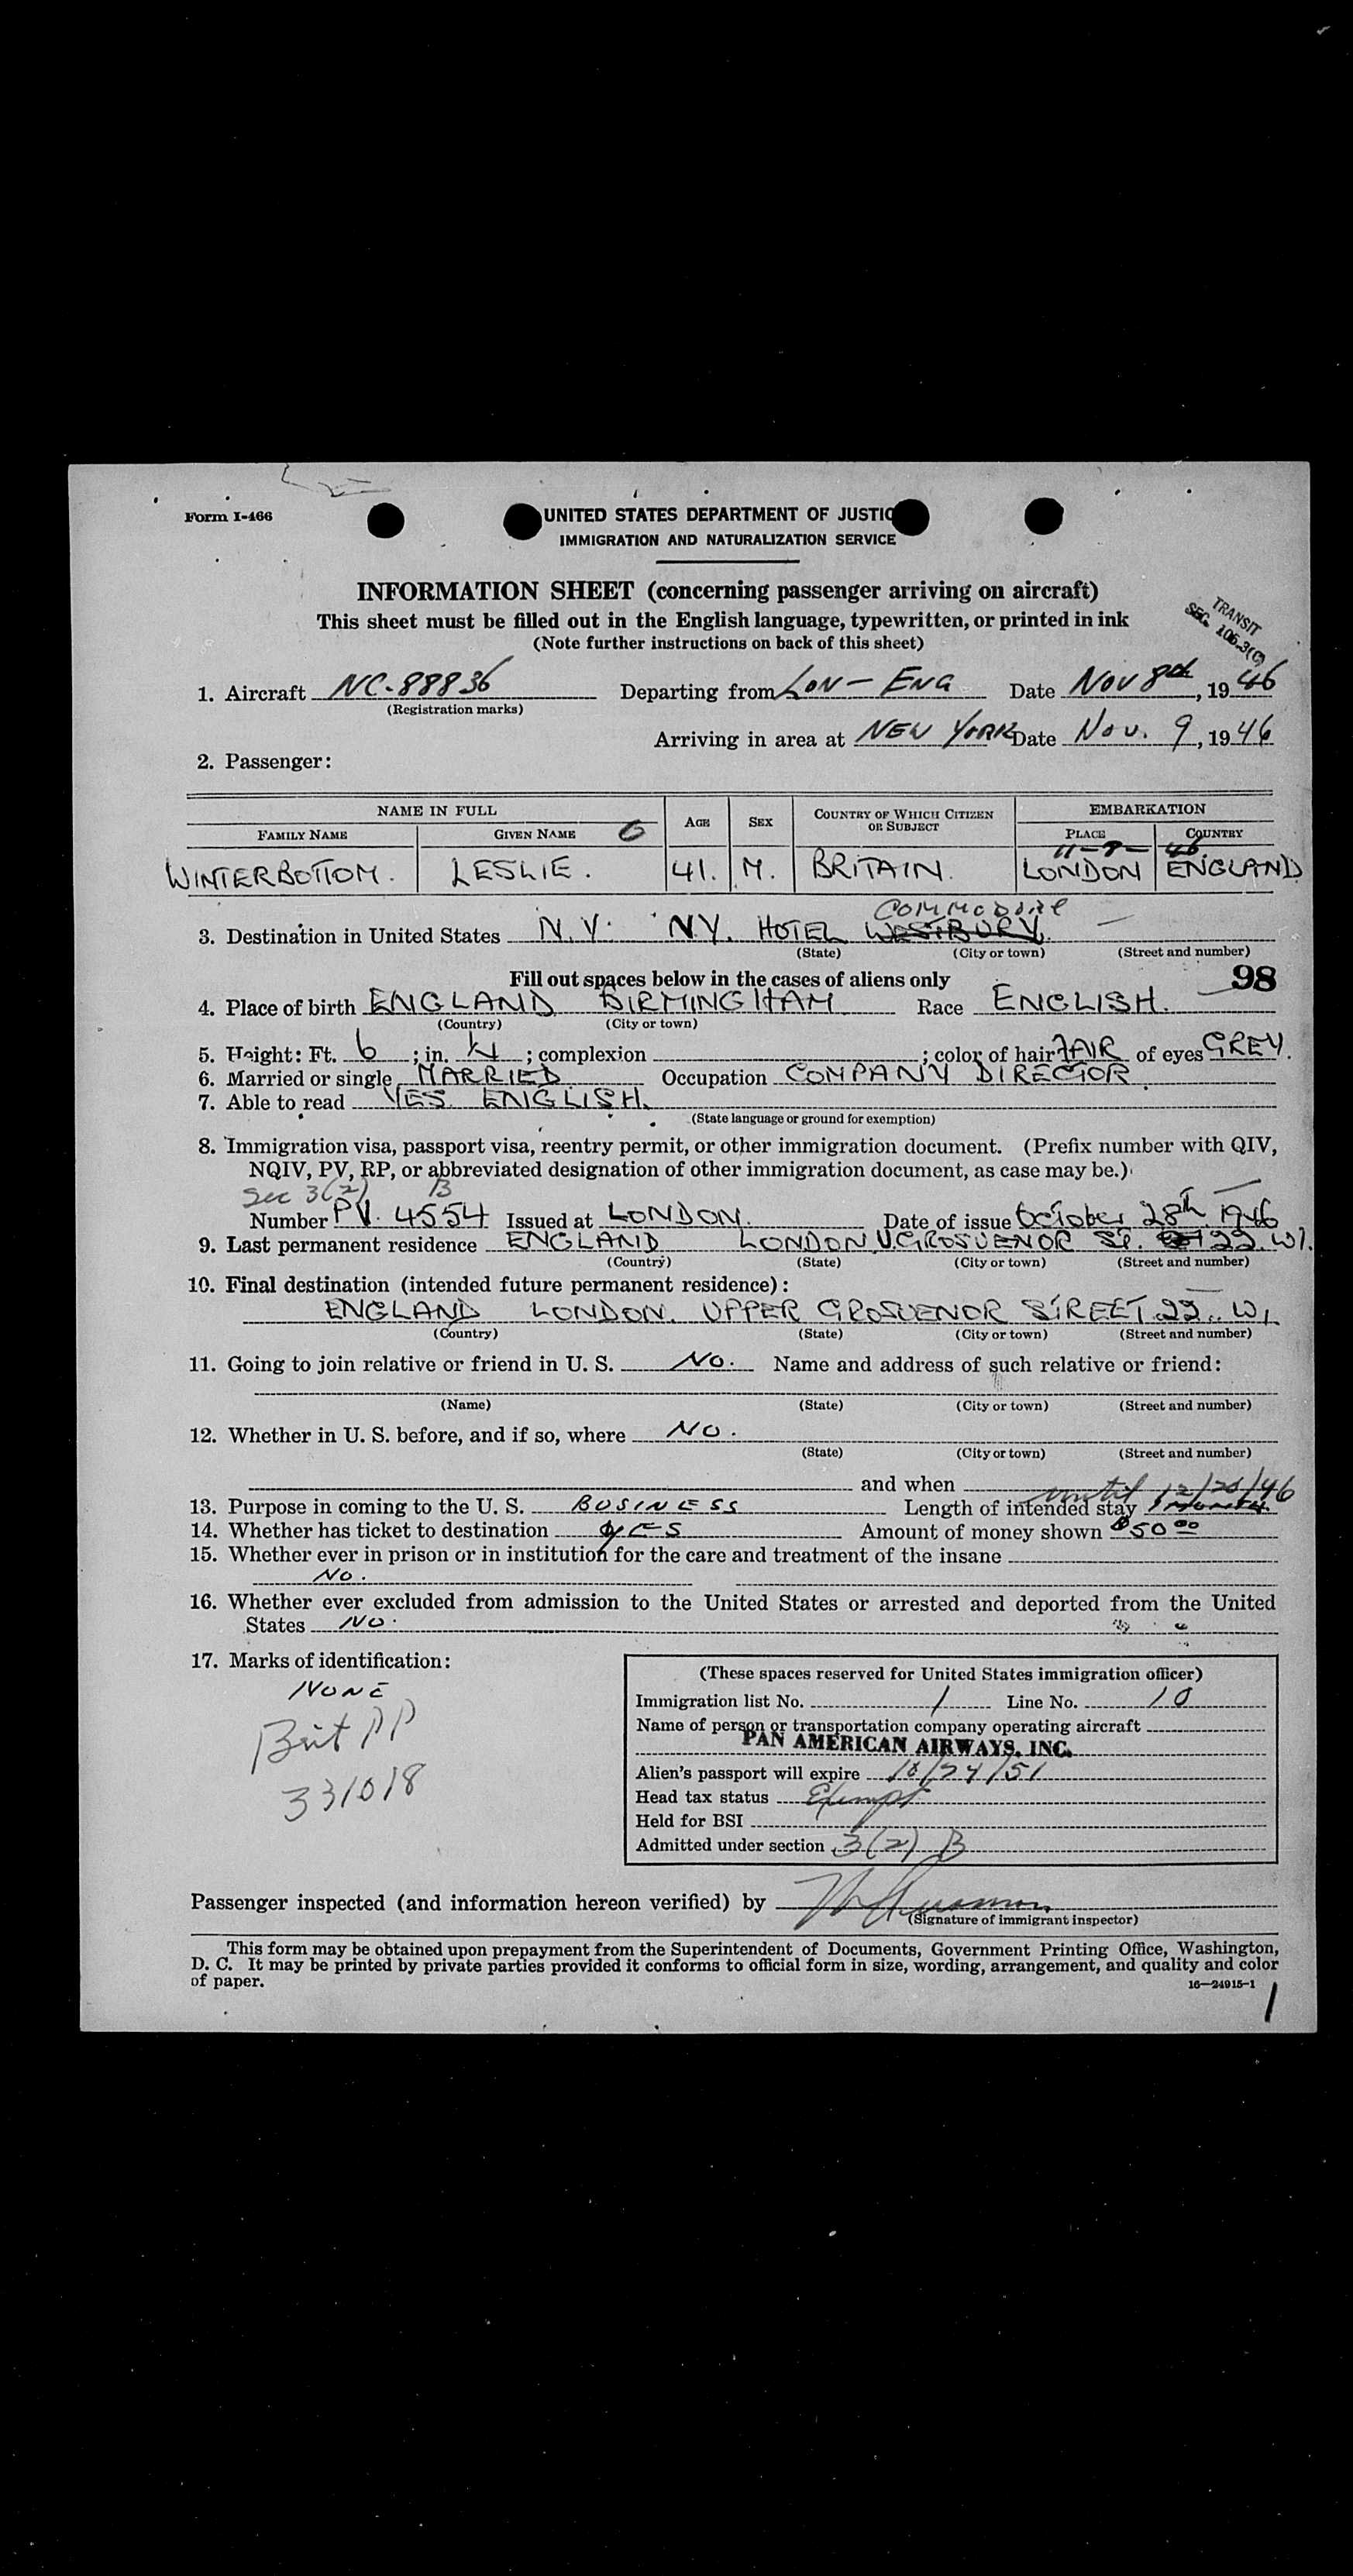 Form I-466
UNITED STATES DEPARTMENT OF JUSTIC
IMMIGRATION AND NATURALIZATION SERVICE
INFORMATION SHEET (concerning passenger arriving on aircraft)
This sheet must be filled out in the English language, typewritten, or printed in ink
(Note further instructions on back of this sheet)
TRANSIT
SEC. 105.3(C)
1. Aircraft NC-88836 Departing from LON - ENG Date Nov 8th, 1946
(Registration marks)
Arriving in area at NEW YORK Date Nov. 9, 1946
2. Passenger:
NAME IN FULL AGE SEX COUNTRY OF WHICH CITIZEN OR SUBJECT EMBARKATION
FAMILY NAME GIVEN NAME PLACE COUNTRY
WINTERBOTTOM. LESLIE. 41. M. BRITAIN. LONDON ENGLAND
COMMODORE
3. Destination in United States N.Y. N.Y. HOTEL WESTBURY.
(State) (City or town) (Street and number)
Fill out spaces below in the cases of aliens only 98
4. Place of birth ENGLAND BIRMINGHAM Race ENGLISH.
(Country) (City or town)
5. Height: Ft. 6; in. ; complexion ; color of hair FAIR of eyes GREY.
6. Married or single MARRIED Occupation COMPANY DIRECTOR.
7. Able to read YES ENGLISH.
(State language or ground for exemption)
8. Immigration visa, passport visa, reentry permit, or other immigration document. (Prefix number with QIV,
NQIV, PV, RP, or abbreviated designation of other immigration document, as case may be.)
Sec 3(2) B
Number PV. 4554 Issued at LONDON. Date of issue October 28th 1946
9. Last permanent residence ENGLAND LONDON U. GROSVENOR ST. 22. W1.
(Country) (State) (City or town) (Street and number)
10. Final destination (intended future permanent residence):
ENGLAND LONDON. UPPER GROSVENOR STREET. 22. W1
(Country) (State) (City or town) (Street and number)
11. Going to join relative or friend in U. S. No. Name and address of such relative or friend:
(Name) (State) (City or town) (Street and number)
12. Whether in U. S. before, and if so, where NO.
(State) (City or town) (Street and number)
and when
13. Purpose in coming to the U. S. BUSINESS Length of intended stay 1 MONTH until 12/20/46
14. Whether has ticket to destination YES Amount of money shown $50.00
15. Whether ever in prison or in institution for the care and treatment of the insane
No.
16. Whether ever excluded from admission to the United States or arrested and deported from the United
States NO.
17. Marks of identification:
NONE
Brit PP
331018
(These spaces reserved for United States immigration officer)
Immigration list No. 1 Line No. 10
Name of person or transportation company operating aircraft
PAN AMERICAN AIRWAYS, INC.
Alien's passport will expire 10/24/51
Head tax status Exempt
Held for BSI
Admitted under section 3(2) B
Passenger inspected (and information hereon verified) by
(Signature of immigrant inspector)
This form may be obtained upon prepayment from the Superintendent of Documents, Government Printing Office, Washington,
D. C. It may be printed by private parties provided it conforms to official form in size, wording, arrangement, and quality and color
of paper.
16—24915-1
1